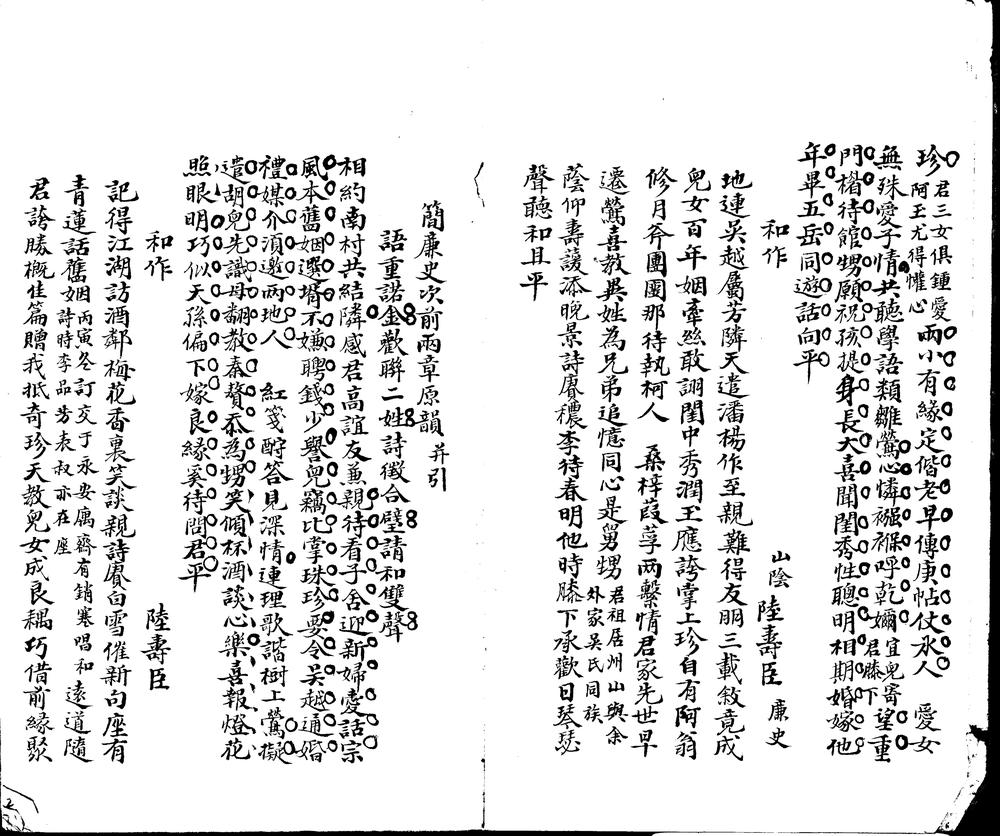 珍君三女俱鍾愛阿玉尤得懽心兩小有緣定偕老早傳庚帖仗氷人　愛女
無殊愛子情共聽學語類雛鶯心憐襁褓呼乾嬭宜兒寄君膝下望重
門楣待館甥願祝孩提身長大喜聞閨秀性聰明相期婚嫁他
年畢五岳同遊話向平
和作　山陰陸壽臣廉史
地連吳越屬芳隣天遣潘楊作至親難得友朋三載敘竟成
兒女百年姻牽絲敢詡閨中秀潤玉應誇掌上珍自有阿翁
修月斧團圞那待執柯人　桑梓葭莩兩繫情君家先世早
遷鶯喜教異姓為兄弟追憶同心是舅甥君祖居州山與余外家吳氏同族
蔭仰壽護添晚景詩賡穠李待春明他時膝下承歡日琴瑟
聲聽和且平
簡廉史次前兩章原韻并引
語重諾金歡聯二姓詩徵合璧請和雙聲
相約南村共結隣感君高誼友兼親待看子舍迎新婦愛話宗
風本舊姻選壻不嫌聘錢少譽兒竊比掌珠珍要令吳越通婚
禮媒介湏邀兩地人　紅箋酧答見深情連理歌諧樹上鶯擬
遣胡兒先識母翻教秦贅忝為甥笑傾杯酒談心樂喜報燈花
照眼明巧似天孫偏下嫁良緣奚待問君平
和作　陸壽臣
記得江湖訪酒鄰梅花香裏笑談親詩賡白雪催新句座有
青蓮話舊姻丙寅冬訂交于永安廨齋有銷寒唱和詩時李品芳表叔亦在座遠道隨
君誇勝概佳篇贈我抵奇珍天教兒女成良耦巧借前緣聚